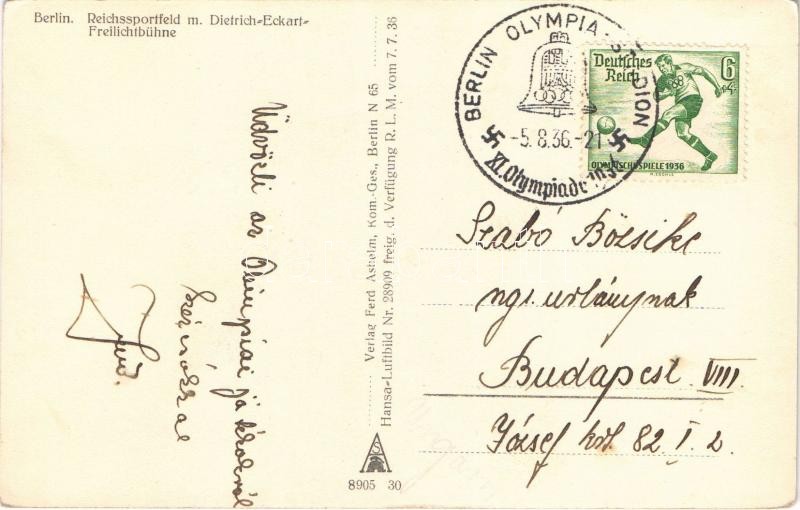 Berlin. Reichssportfeld m. Dietrich-Eckart-
Freilichtbühne
Üdvözli az Olimpiai játékokról
Verlag Ferd Ashelm, Kom.-Ges., Berlin N 65
Hansa-Luftbild Nr. 28909 freig. d. Verfügung R. L. M. vom 7. 7. 36
8905 30
BERLIN OLYMPIA-STADION
-5.8.36.-21
XI. Olympiade 1936
Deutsches
Reich
6
+4
OLYMPISCHE SPIELE 1936
M. ESCHLE
Szabó Bözsike
urlánynak
Budapest VIII
József krt 82. I. 2.